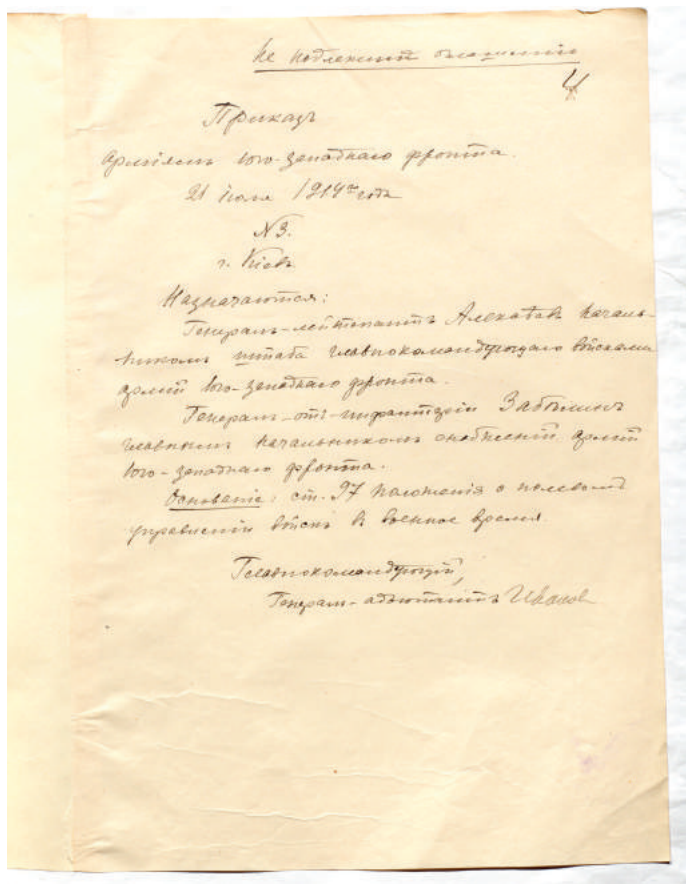 Не подлежитъ оглашенію
4
Приказъ
арміямъ Юго-Западнаго фронта.
21 іюля 1914го года
№3.
г. Кіевъ.
Назначаются:
Генералъ-лейтенантъ Алексѣевъ началь-
никомъ штаба главнокомандующаго войсками
армій Юго-Западнаго фронта.
Генералъ-отъ-инфантеріи Забѣлинъ
главнымъ начальникомъ снабженій армій
Юго-Западнаго фронта.
Основаніе: ст. 97 Положенія о полевомъ
управленіи войскъ въ военное время.
Главнокомандующій,
Генералъ-адъютантъ Ивановъ